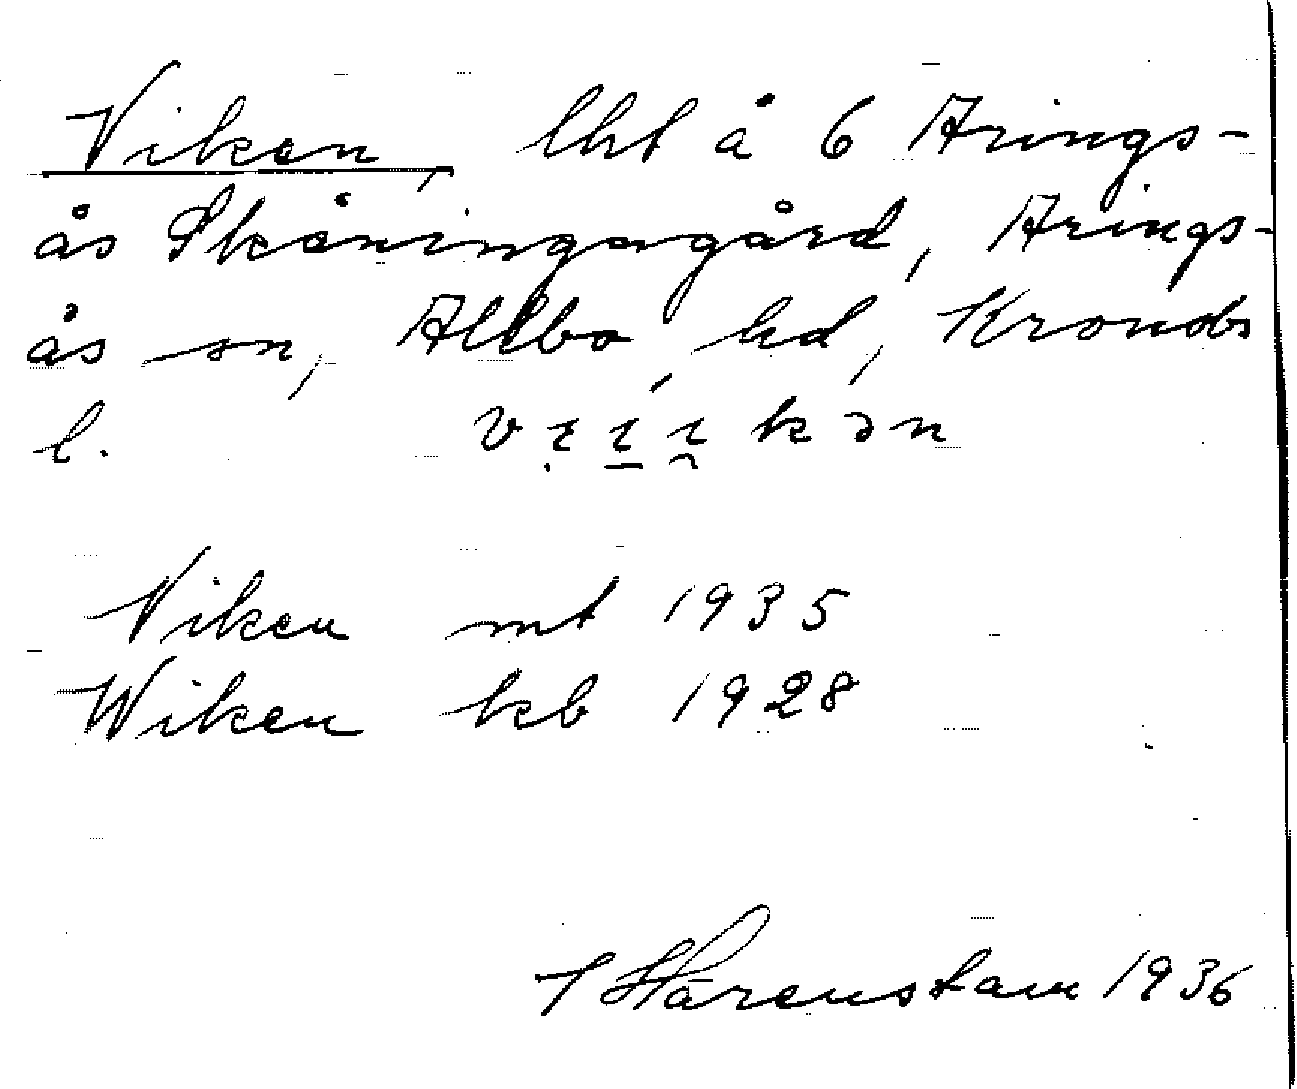 Viken, lht å 6 Arings-
ås Skåningagård, Arings-
ås sn, Allbo hd, Kronobs
l. vịí̱i̯kən
Viken mt 1935
Wiken kb 1928
Härenstam 1936